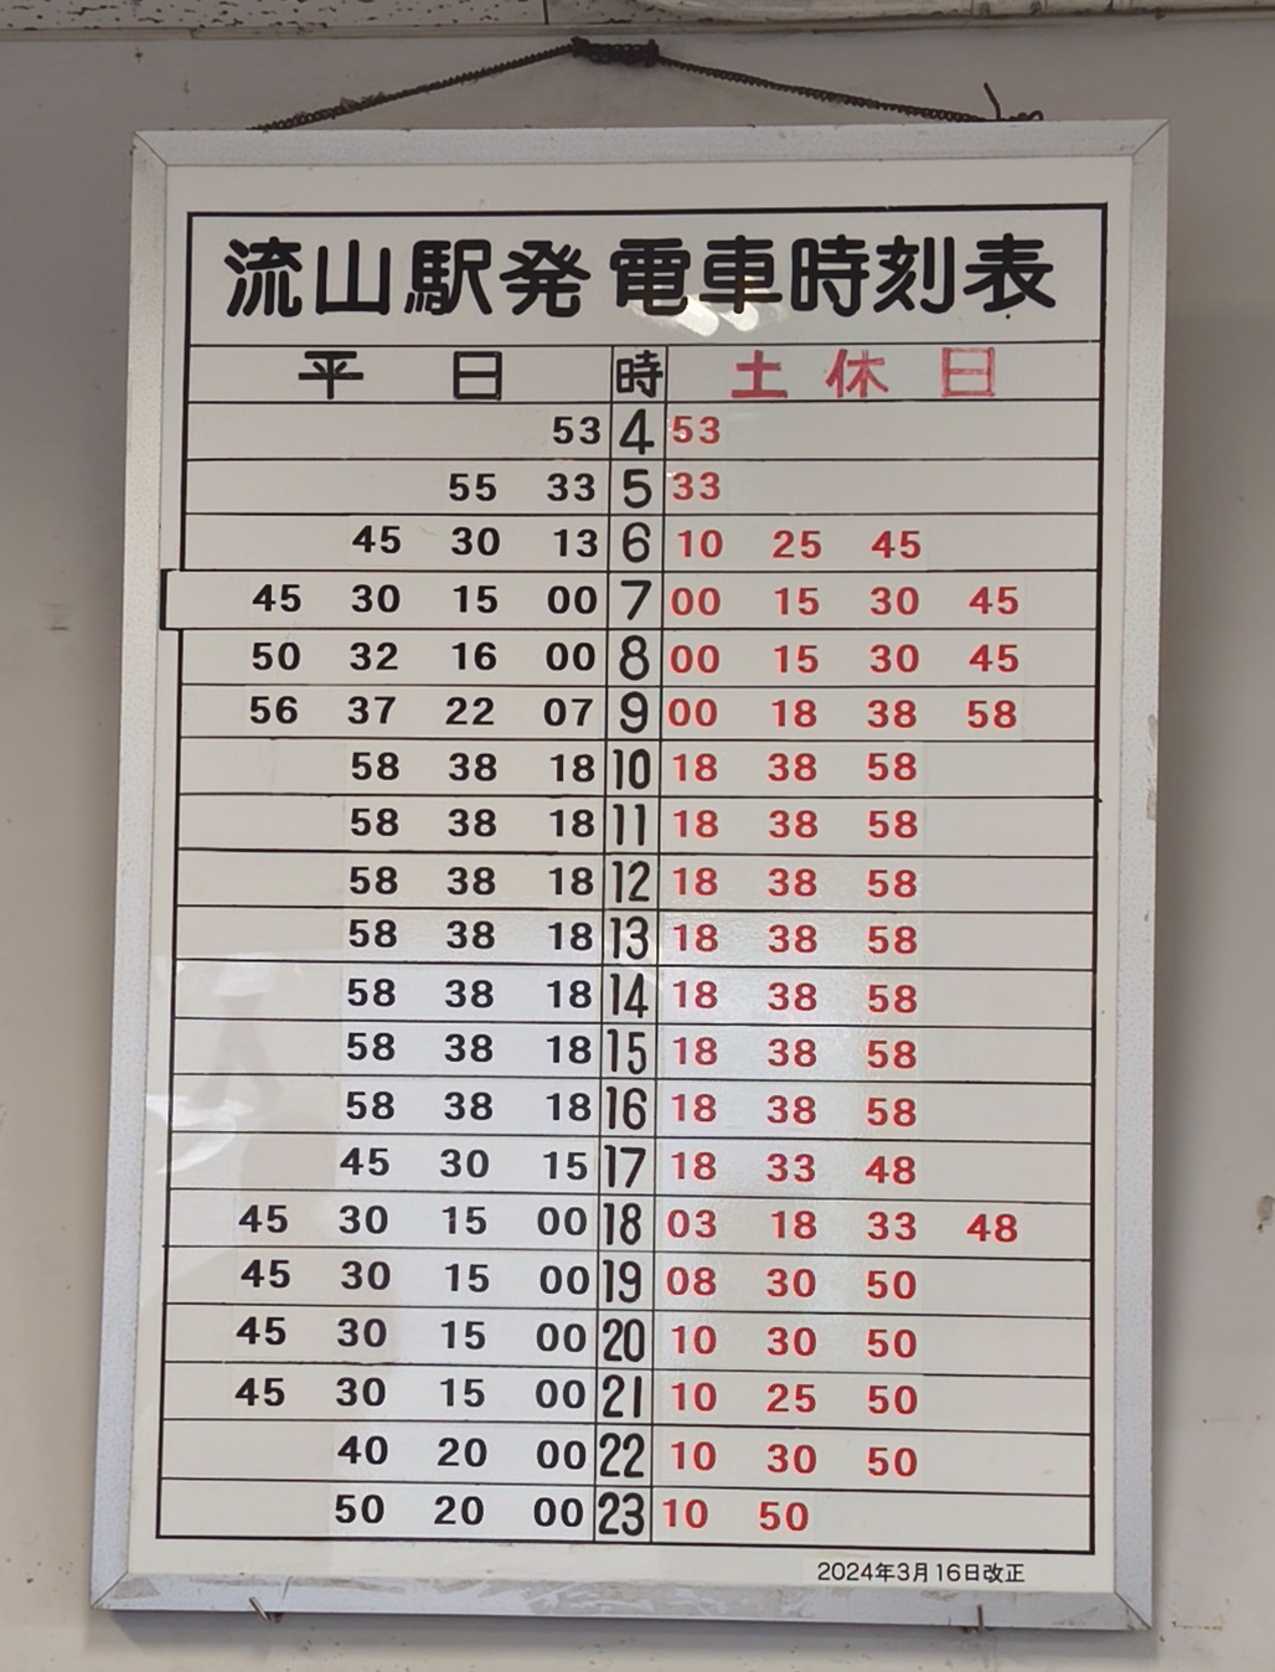 流山駅発 電車時刻表
平日 時 土休日
53 4 53
55 33 5 33
45 30 13 6 10 25 45
45 30 15 00 7 00 15 30 45
50 32 16 00 8 00 15 30 45
56 37 22 07 9 00 18 38 58
58 38 18 10 18 38 58
58 38 18 11 18 38 58
58 38 18 12 18 38 58
58 38 18 13 18 38 58
58 38 18 14 18 38 58
58 38 18 15 18 38 58
58 38 18 16 18 38 58
45 30 15 17 18 33 48
45 30 15 00 18 03 18 33 48
45 30 15 00 19 08 30 50
45 30 15 00 20 10 30 50
45 30 15 00 21 10 25 50
40 20 00 22 10 30 50
50 20 00 23 10 50
2024年3月16日改正